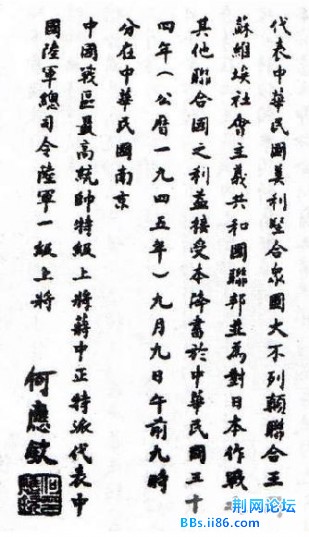 代表中華民國美利堅合眾國大不列顛聯合王
蘇維埃社會主義共和國聯邦並為對日本作戰
其他聯合國之利益接受本降書於中華民國三十
四年(公曆一九四五年)九月九日午前九時
分在中華民國南京
中國戰區最高統帥特級上將蔣中正特派代表中
國陸軍總司令陸軍一級上將
何應欽
荆网论坛
BBs.ii86.com